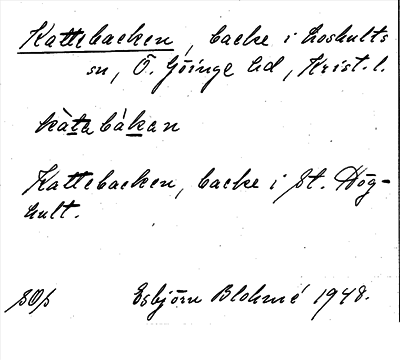 Kattebacken, backe i Loshults
sn, Ö. Göinge hd, Krist. l.
kàta bákan
Kattebacken, backe i St. Hög-
hult.
Esbjörn Blohmé 1948.